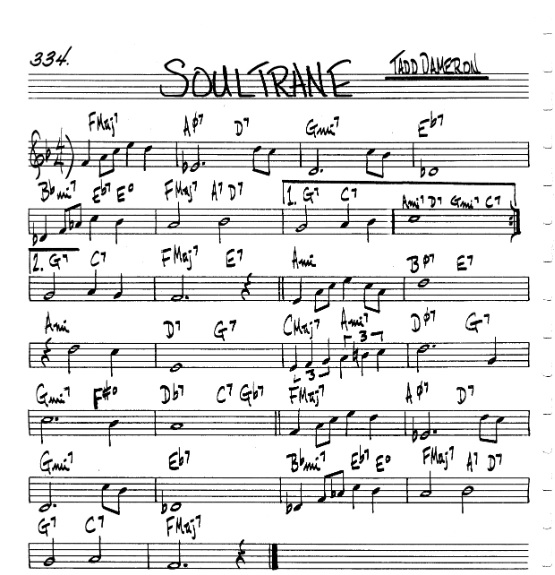 334.
SOULTRANE
TADD DAMERON
FMaj7 Aø7 D7 Gmi7 Eb7
4 4
Bbmi7 Eb7 E° FMaj7 A7 D7 1. G7 C7 Ami7 D7 Gmi7 C7
2. G7 C7 FMaj7 E7 Ami Bø7 E7
Ami D7 G7 CMaj7 Ami7 Dø7 G7
3
3
Gmi7 F#° Db7 C7 Gb7 FMaj7 Aø7 D7
Gmi7 Eb7 Bbmi7 Eb7 E° FMaj7 A7 D7
G7 C7 FMaj7